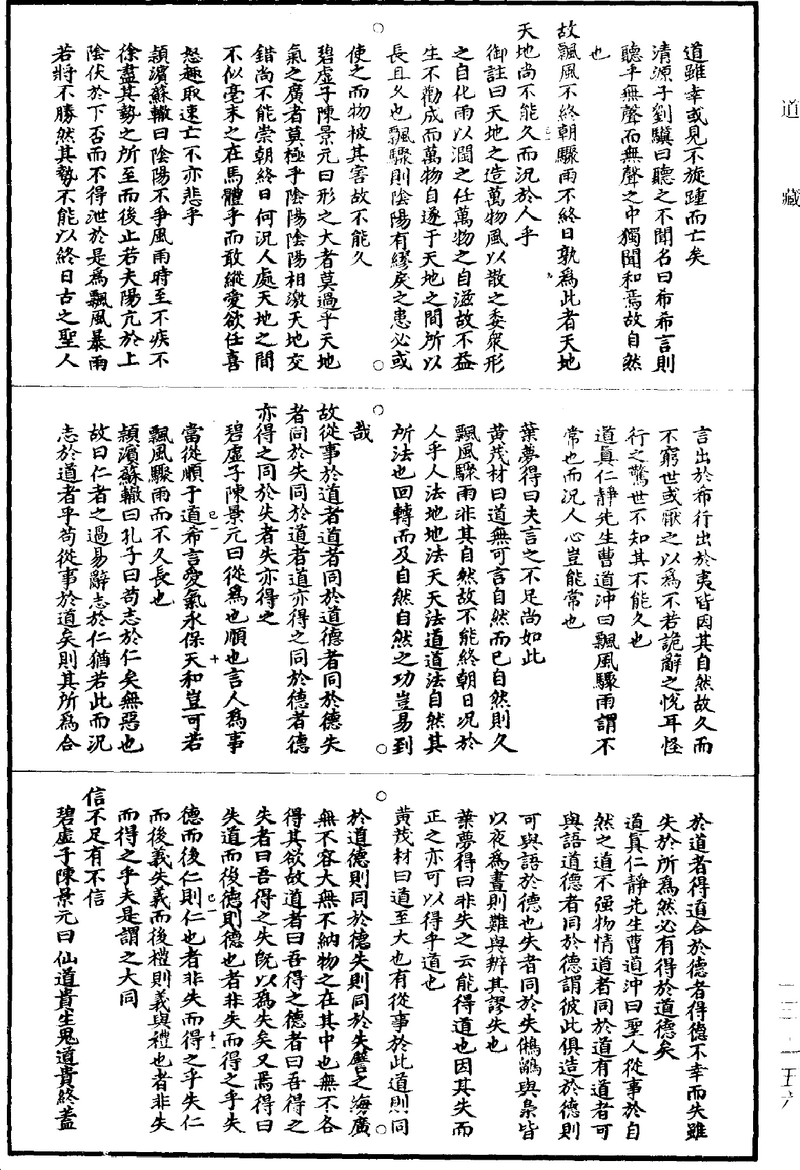 道藏
道雖幸或見不旋踵而亡矣
清源子劉驥曰聽之不聞名曰希希言則
聽乎無聲而無聲之中獨聞和焉故自然
也
故飄風不終朝驟雨不終日孰為此者天地
天地尚不能久而況於人乎
御註曰天地之造萬物風以散之委衆形
之自化雨以潤之任萬物之自滋故不益
生不勸成而萬物自遂于天地之間所以
長且久也飄驟則陰陽有繆戾之患必或
使之而物被其害故不能久
碧虛子陳景元曰形之大者莫過乎天地
氣之廣者莫極乎陰陽陰陽相激天地交
錯尚不能崇朝終日何況人處天地之間
不似毫末之在馬體乎而敢縱愛欲任喜
怒趣取速亡不亦悲乎
頴濱蘇轍曰陰陽不爭風雨時至不疾不
徐盡其勢之所至而後止若夫陽亢於上
陰伏於下否而不得泄於是為飄風暴雨
若將不勝然其勢不能以終日古之聖人
言出於希行出於夷皆因其自然故久而
不窮世或厭之以為不若詭辭之悅耳怪
行之驚世不知其不能久也
道真仁靜先生曹道沖曰飄風驟雨謂不
常也而況人心豈能常也
葉夢得曰夫言之不足尚如此
黃茂材曰道無可言自然而已自然則久
飄風驟雨非其自然故不能終朝日況於
人乎人法地地法天天法道道法自然其
所法也回轉而及自然自然之功豈易到
哉
故從事於道者道者同於道德者同於德失
者同於失同於道者道亦得之同於德者德
亦得之同於失者失亦得之
碧虛子陳景元曰從為也順也言人為事
當從順于道希言愛氣永保天和豈可若
飄風驟雨而不久長也
頴濱蘇轍曰孔子曰苟志於仁矣無惡也
故曰仁者之過易辭志於仁猶若此而況
志於道者乎苟從事於道矣則其所為合
於道者得道合於德者得德不幸而失雖
失於所為然必有得於道德矣
道真仁靜先生曹道沖曰聖人從事於自
然之道不强物情道者同於道有道者可
與語道德者同於德謂彼此俱造於德則
可與語於德也失者同於失鵂鶹與梟皆
以夜為晝則難與辨其謬失也
葉夢得曰非失之云能得道也因其失而
正之亦可以得乎道也
黃茂材曰道至大也有從事於此道則同
於道德則同於德失則同於失譬之海廣
無不容大無不納物之在其中也無不各
得其欲故道者曰吾得之德者曰吾得之
失者曰吾得之失旣以為失矣又焉得曰
失道而後德則德也者非失而得之乎失
德而後仁則仁也者非失而得之乎失仁
而後義失義而後禮則義與禮也者非失
而得之乎夫是謂之大同
信不足有不信
碧虛子陳景元曰仙道貴生鬼道貴終蓋